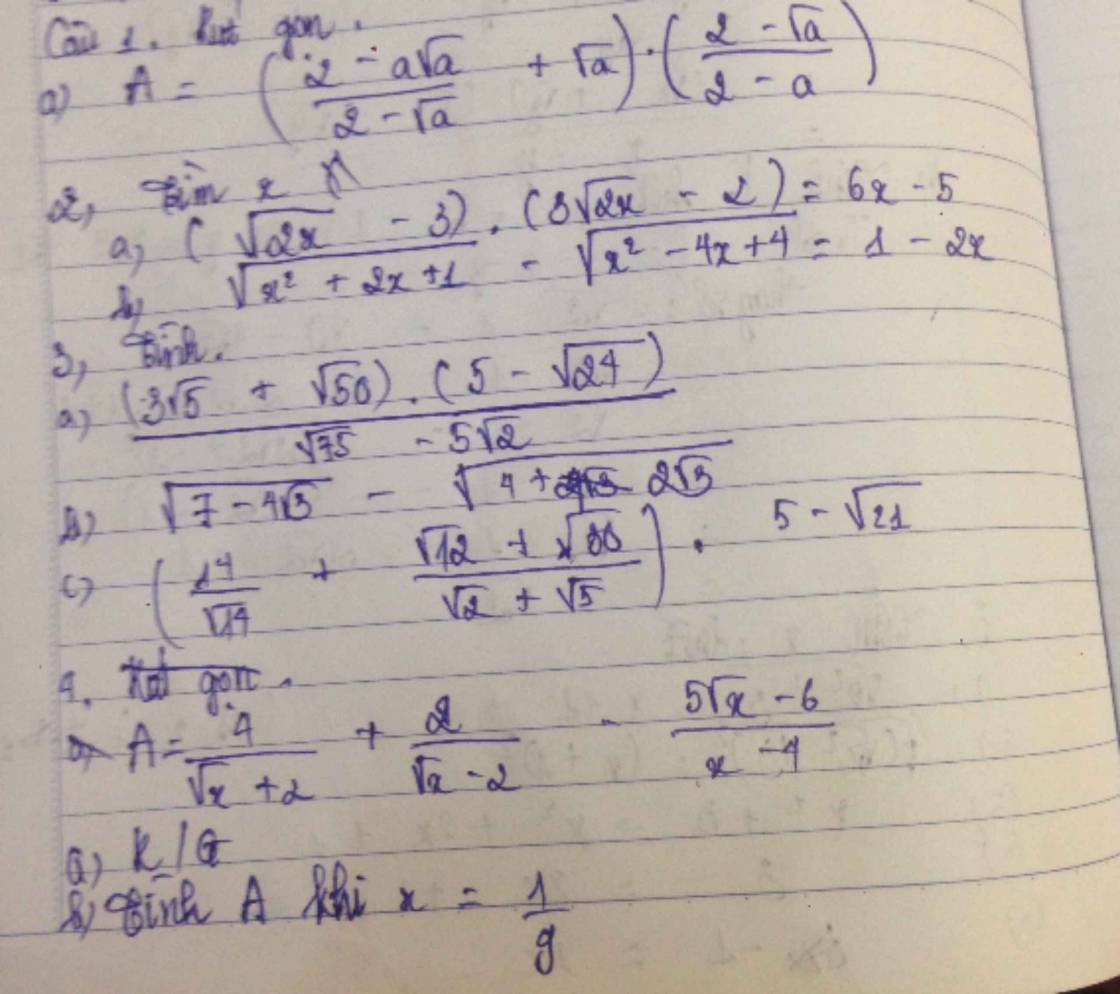 Câu 1. Rút gọn.
a) A = ( (2 - a√a)/(2 - √a) + √a ) . ( (2 - √a)/(2 - a) )
2, Tìm x
a, ( √2x - 3) . (3√2x - 2) = 6x - 5
b, √(x² + 2x + 1) - √(x² - 4x + 4) = 1 - 2x
3, Tính.
a) (3√5 + √50) . (5 - √24) / (√75 - 5√2)
b) √(7 - 4√3) - √(4 + 2√3)
c) ( 14/√14 + (√12 + √30)/(√2 + √5) ) . 5 - √21
4. Rút gọn.
A = 4/(√x + 2) + 2/(√x - 2) - (5√x - 6)/(x - 4)
a) R/G
b, Tính A khi x = 1/9